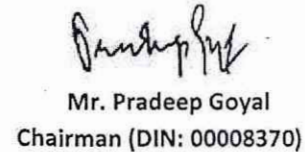 Mr. Pradeep Goyal
Chairman (DIN: 00008370)